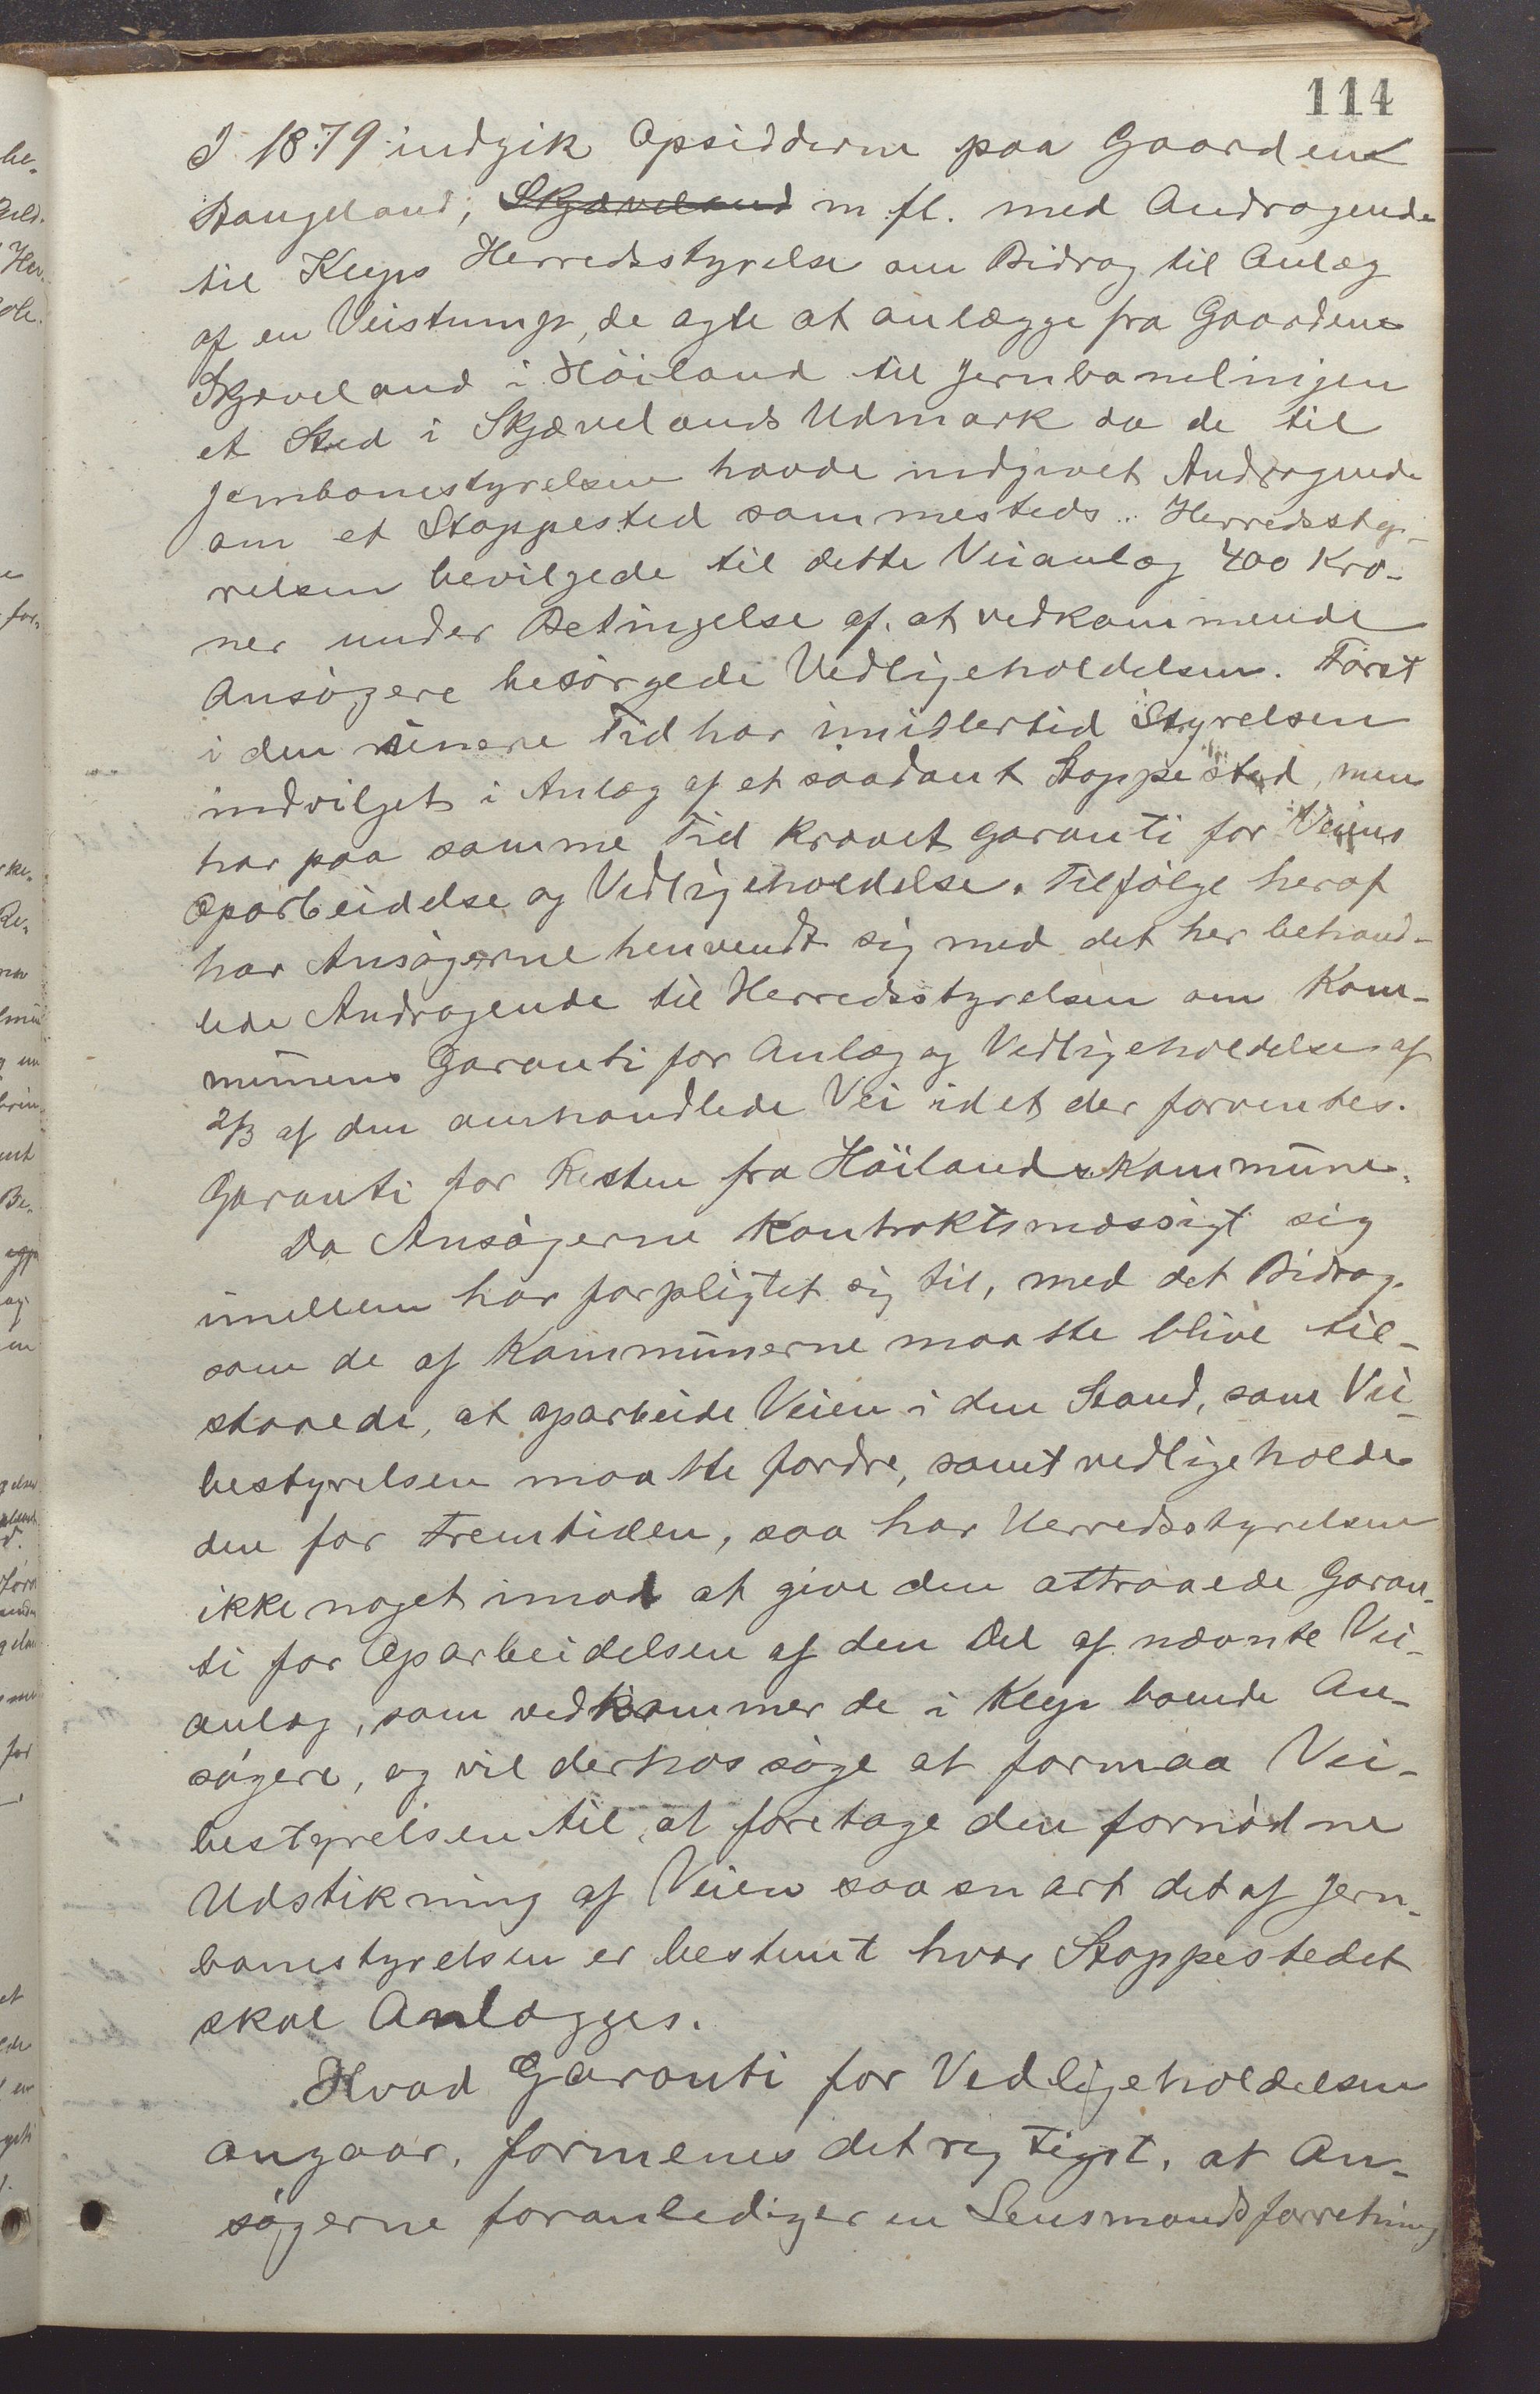 114
I 1879 indgik Opsidderne paa Gaarden
Stangeland, Skjæveland m. fl. med Andragende
til Kleps Herredsstyrelse om Bidrag til Anlæg
af en Veistump, de agte at anlægge fra Gaardene
Skjæveland i Höiland til Jernbanelinjen
et Sted i Skjævelands Udmark da de til
Jernbanestyrelsen havde indgivet Andragende
om et Stoppested sammesteds. Herredssty-
relsen bevilgede til dette Veianlæg 400 Kro-
ner under Betingelse af at vedkommende
Ansögere besörgede Vedligeholdelsen. Först
i den senere Tid har imidlertid Styrelsen
indvilget i Anlæg af et saadant Stoppested, men
har paa samme Tid krævet Garanti for Veiens
Oparbeidelse og Vedligeholdelse. Tilfölge heraf
har Ansögerne henvendt sig med det her behand-
lede Andragende til Herredsstyrelsen om Kom-
munens Garanti for Anlæg og Vedligeholdelse af
2/3 af den omhandlede Vei idet der forventes
Garanti for Resten fra Höilands Kommune.
Da Ansögerne kontraktsmæssigt sig
imellem har forpligtet sig til, med det Bidrag
som de af Kommunerne maatte blive til-
staaede, at oparbeide Veien i den Stand, som Vei-
bestyrelsen maatte fordre, samt vedligeholde
den for Fremtiden, saa har Herredsstyrelsen
ikke noget imod at give den attraaede Garan-
ti for Oparbeidelsen af den Del af nævnte Vei-
anlæg, som vedkommer de i Klep boende An-
sögere, og vil derhos söge at formaa Vei-
bestyrelsen til at foretage den fornödne
Udstikning af Veien saasnart det af Jern-
banestyrelsen er bestemt hvor Stoppestedet
skal Anlægges.
Hvad Garanti for Vedligeholdelsen
angaar, formenes det rigtigst, at An-
sögerne foranlediger en Lensmandsforretning